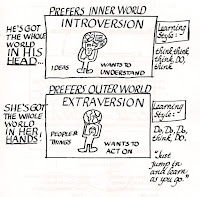 PREFERS INNER WORLD
INTROVERSION
HE'S GOT
THE WHOLE
WORLD
IN HIS
HEAD...
IDEAS
WANTS TO
UNDERSTAND
Learning
Style:-
think, think
think, DO,
think
PREFERS OUTER WORLD
EXTRAVERSION
SHE'S GOT
THE WHOLE
WORLD
IN HER
HANDS!
PEOPLE &
THINGS
WANTS TO
ACT ON
Learning
Style:-
Do, Do, Do,
think, DO.
"Just
Jump in
and learn
as you go."